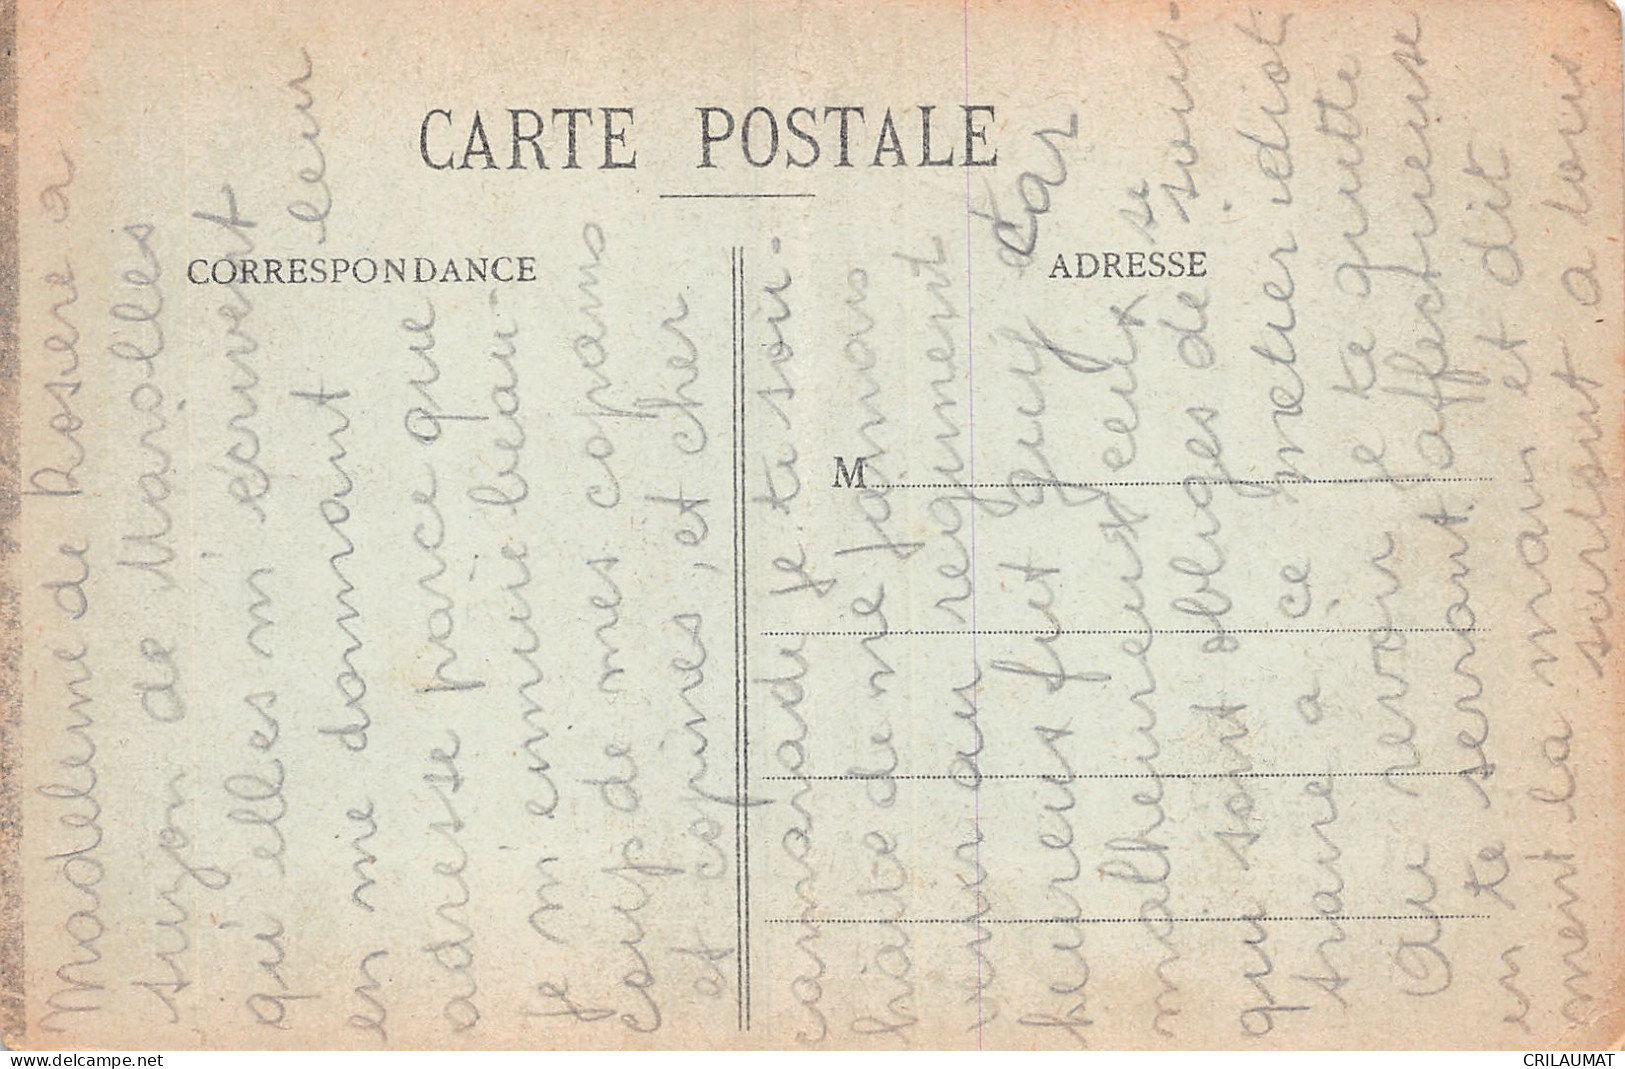 CARTE POSTALE
CORRESPONDANCE
ADRESSE
M
Madeleine de Rosere a
suzon de Marolles
qu'elles m'écrivent
en me donnant leur
adresse parce que
je m'ennuie beau-
coup de mes copains
et copines, et cher
camarade je te soui-
haite de ne jamais
venir au regiment
heureus fut guy car
malheureux ceux se
qui sont obliges de sous-
traire a ce metier idiot
Au revoir je te quitte
en te serrant affectueuse
ment la main et dit
surtout a tous
CRILAUMAT